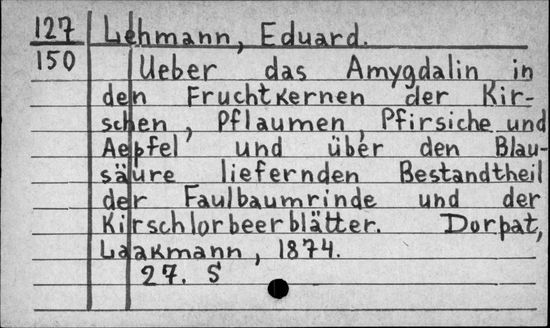 127 Lehmann, Eduard.
150 Ueber das Amygdalin in
den Fruchtkernen der Kir-
schen, Pflaumen, Pfirsiche und
Aepfel und über den Blau-
säure liefernden Bestandtheil
der Faulbaumrinde und der
Kirschlorbeerblätter. Dorpat,
Laakmann, 1874.
27. S